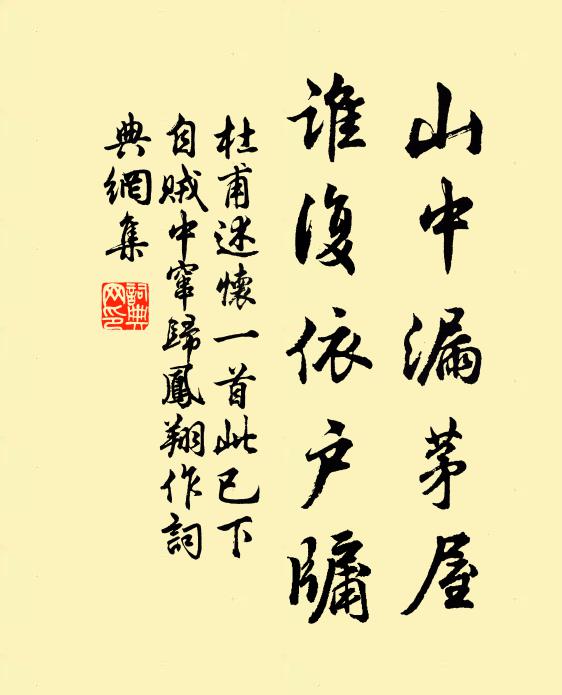 山中漏茅屋
誰復依户牖
杜甫述懷一首此已下
自賊中竄歸鳳翔作詞
典網集
詞典
网印